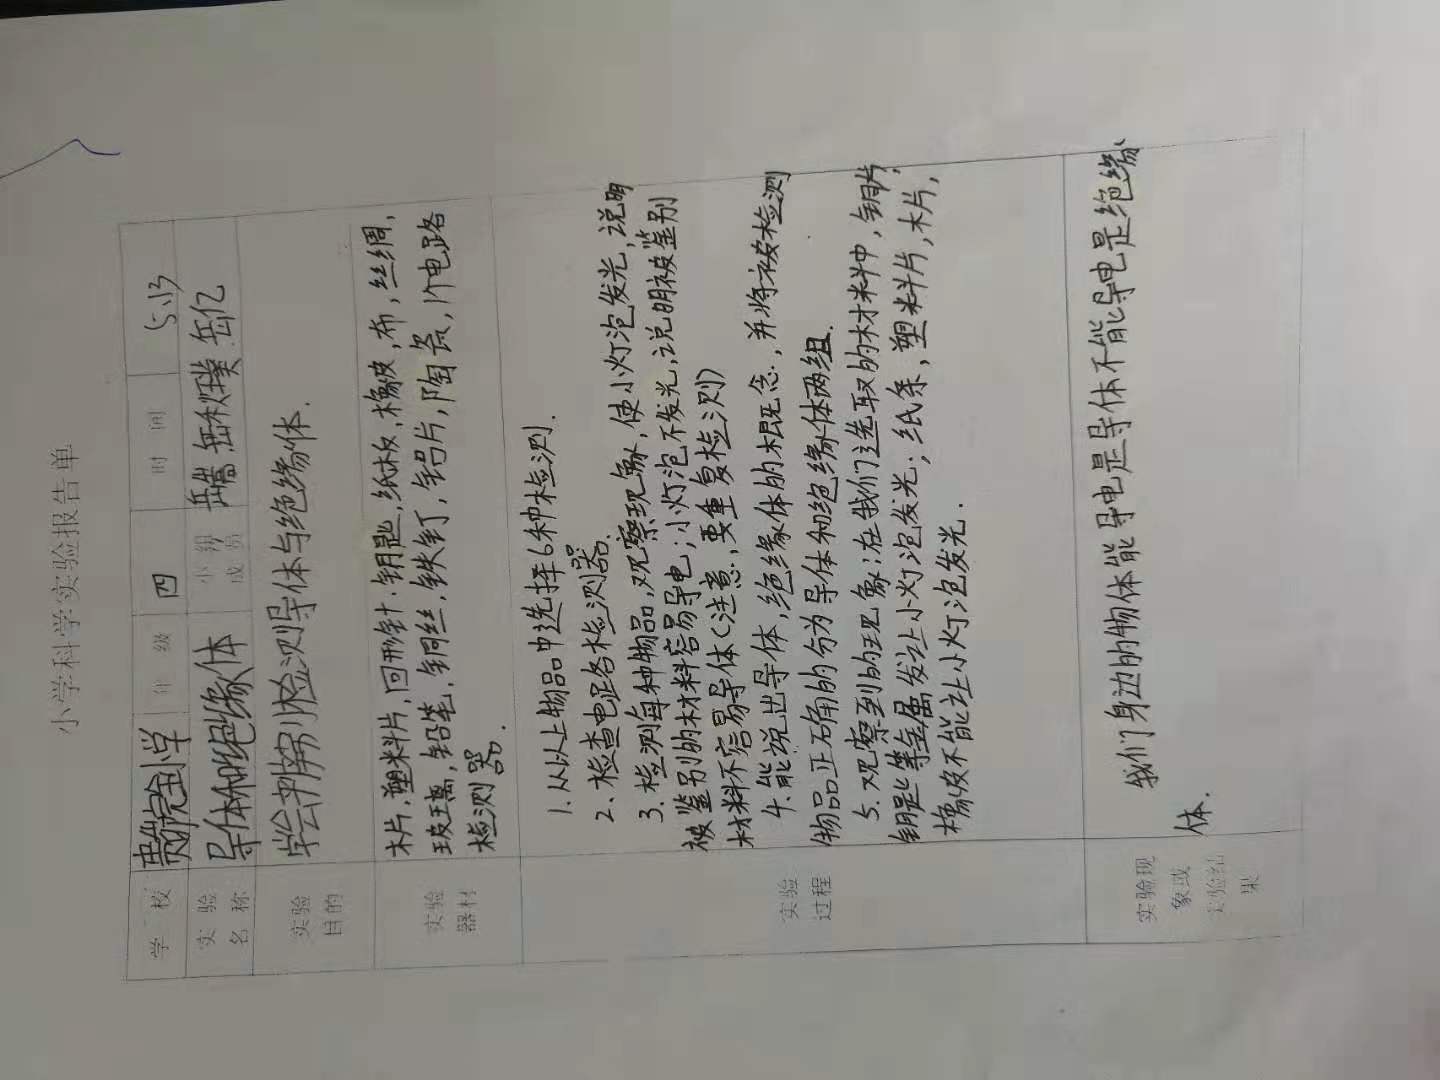 小学科学实验报告单
学 校 年 级 四 时 间 5.13
实 验 名 称 导体和绝缘体 小 组 成 员 岳亿
实验目的 学会判别检测导体与绝缘体.
实验器材 木片,塑料片,回形针.钥匙,纸板,橡皮,布,丝绸,
玻璃,铅笔,铜丝,铁钉,铝片,陶瓷,1个电路
检测器.
实验过程 1.从以上物品中选择6种检测.
2.检查电路检测器.
3.检测每种物品,观察现象,使小灯泡发光,说明
被鉴别的材料容易导电;小灯泡不发光,说明被鉴别
材料不容易导体(注意,要重复检测)
4.能说出导体,绝缘体的概念,并将被检测
物品正确的分为导体和绝缘体两组.
5.观察到的现象:在我们选取的材料中,铜片,
钥匙等金属发让小灯泡发光;纸条,塑料片,木片,
橡皮不能让小灯泡发光.
实验现象或实验结果 我们身边的物体能导电是导体不能导电是绝缘
体.